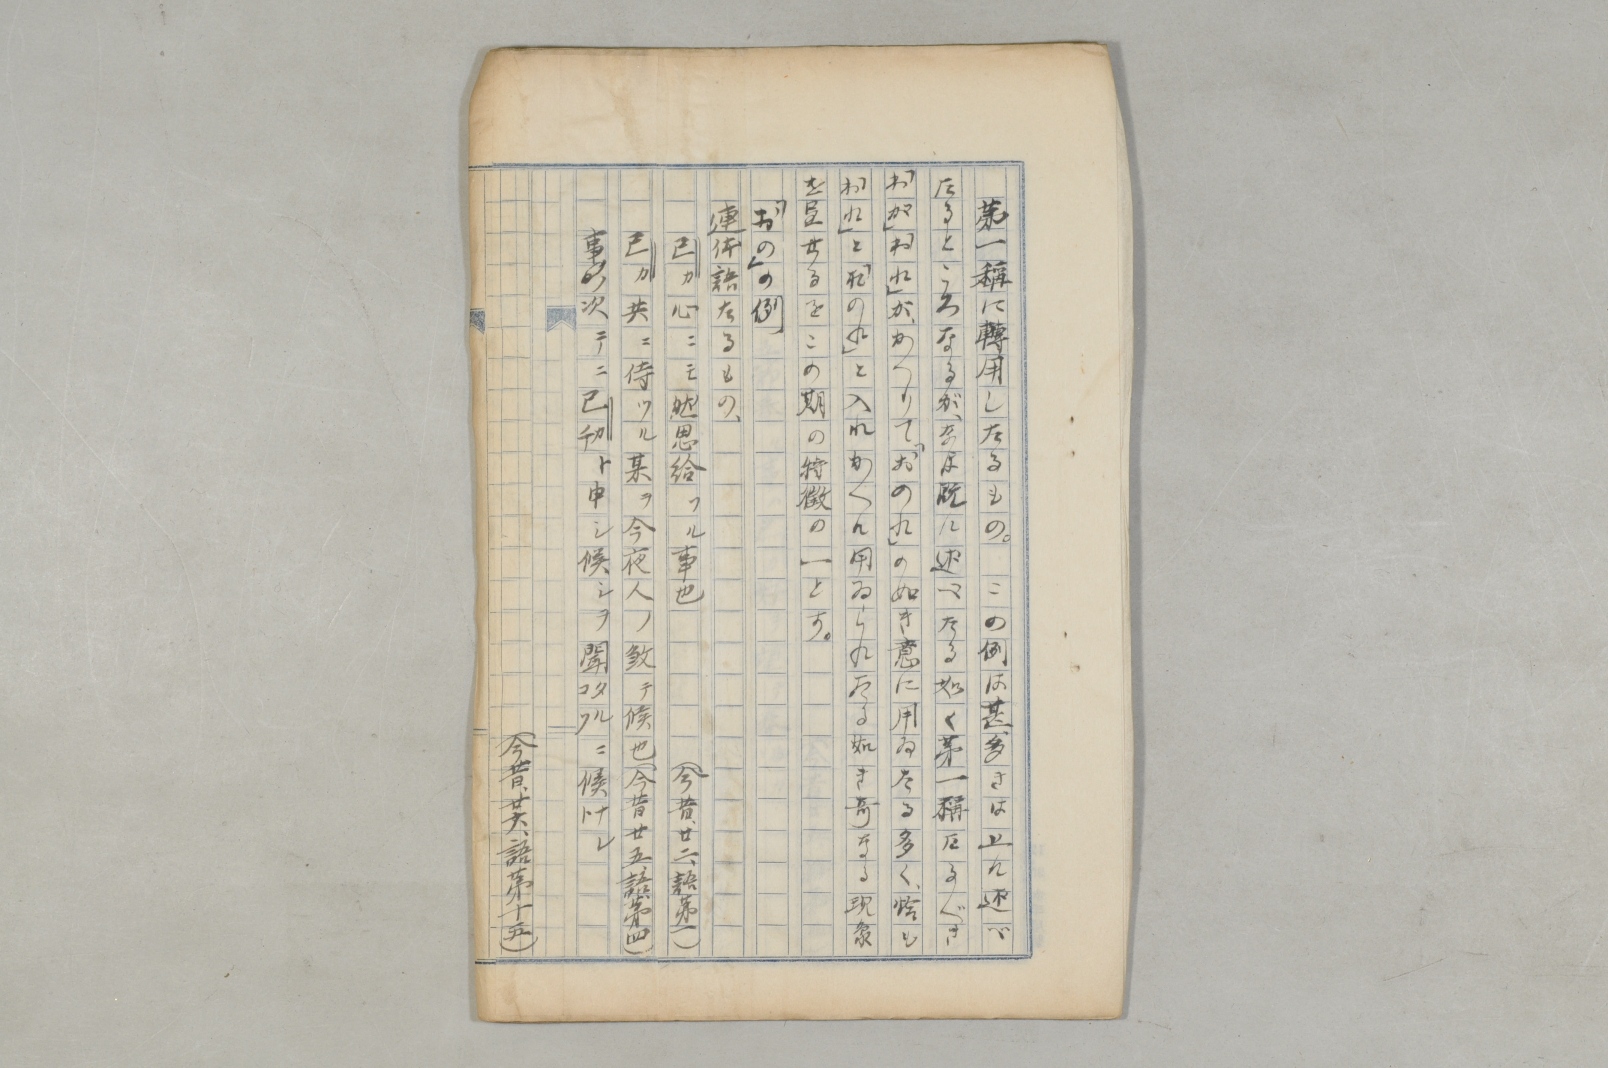 第一稱に轉用したるもの。この例は甚多きは上に述べ
たるところなるが、なほ既に述べたる如く第一稱たるべき
「わが」「われ」が、かへりて「おのれ」の如き意に用ゐたる多く、恰も
「われ」と「おのれ」と入れかへに用ゐられたる如き奇なる現象
を呈せるをこの期の特徴の一とす。
「おの」の例
連体語なるもの、
己カ心ニモ然思給ツル事也（今昔、廿二、語第一）
己カ共ニ侍ツル某ヲ今夜人ノ殺テ候也（今昔廿五、語第四）
事ノ次テニ己カ
ト申シ候シヲ聞コタフルニ候トナレ
（今昔、廿六、語第十五）